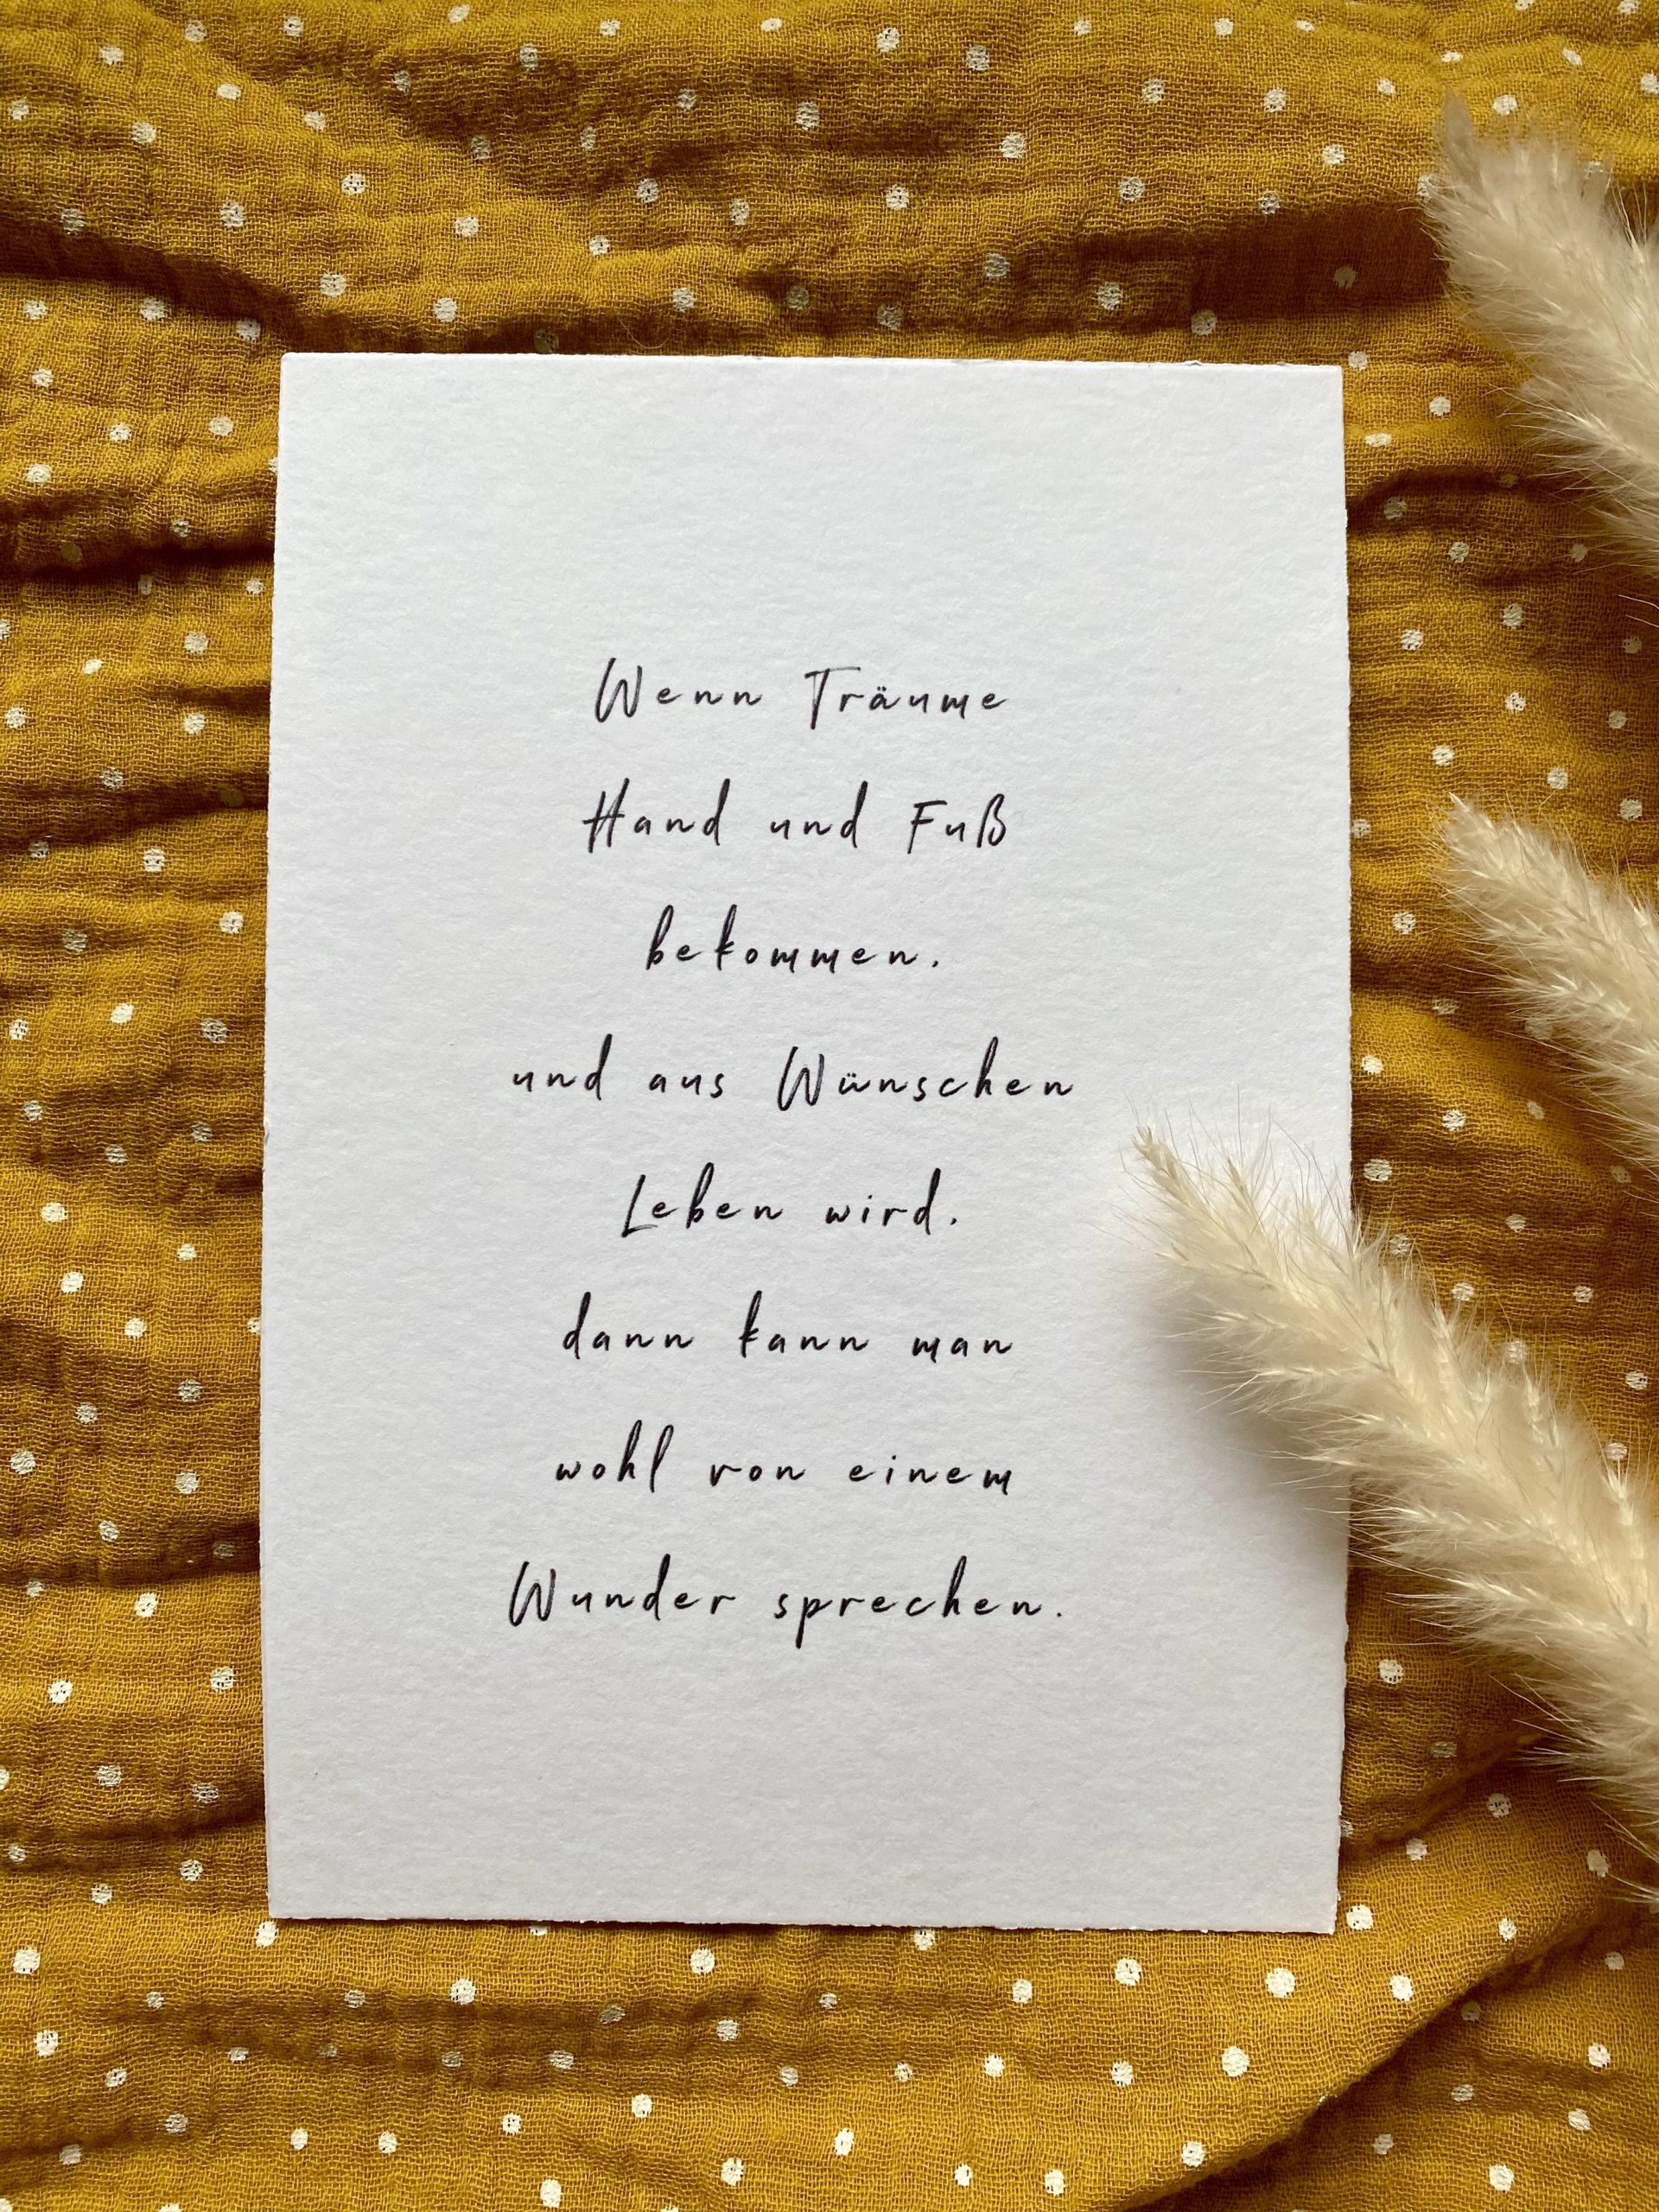 Wenn Träume
Hand und Fuß
bekommen.
und aus Wünschen
Leben wird.
dann kann man
wohl von einem
Wunder sprechen.